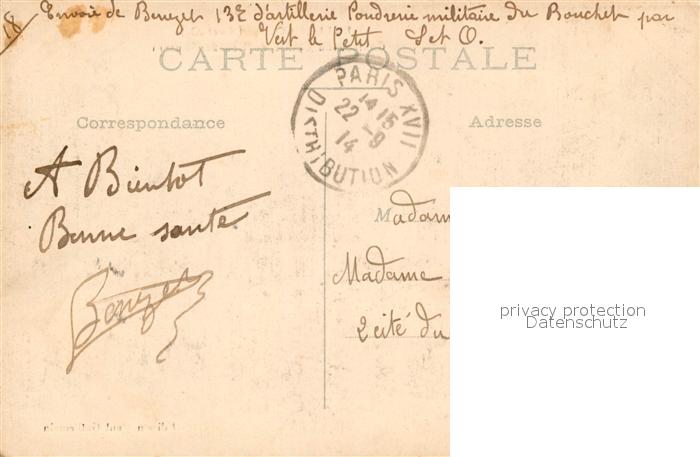 Envoie de Benezet 13E d'artillerie Poudrerie militaire du Bouchet par
Vert le Petit S et O.
CARTE POSTALE
PARIS XVII
14 15
22 - 9
14
DISTRIBUTION
Correspondance
Adresse
A Bientot
Bonne santé
Benezet
Madam
Madame
2 cité du
privacy protection
Datenschutz